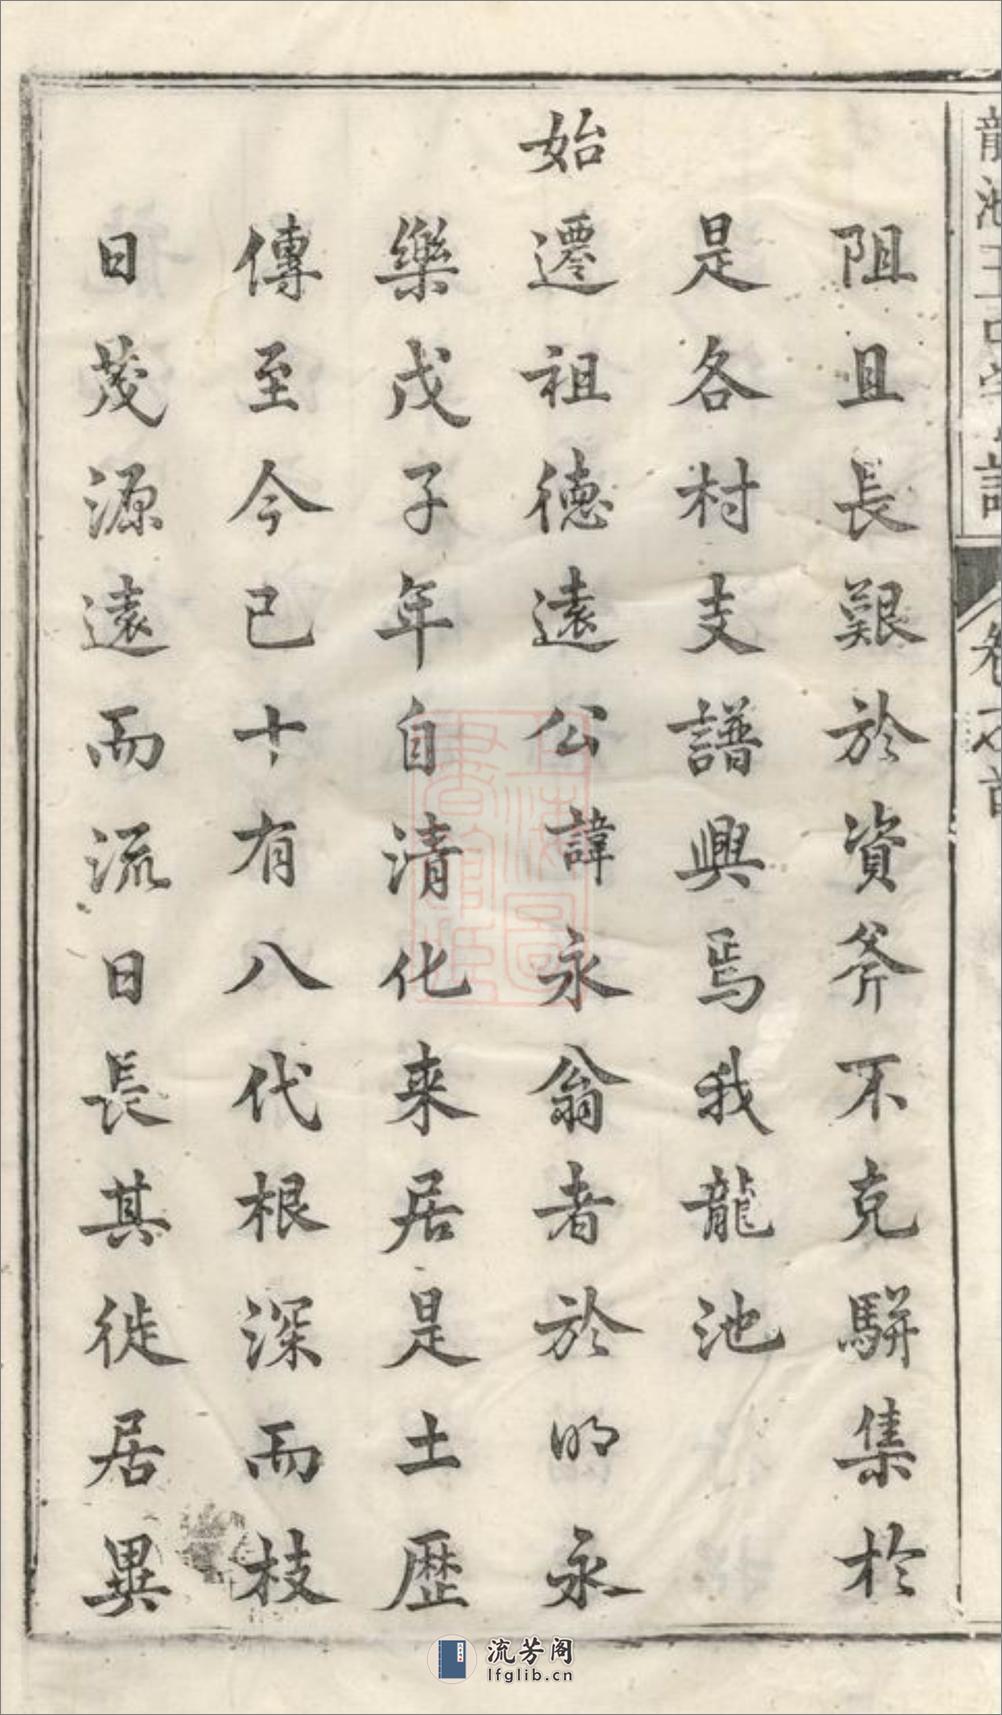 阻且長艱於資斧不克駢集於
是各村支譜興焉我龍池
始遷祖德遠公諱永翁者於明永
樂戊子年自清化来居是土歷
傳至今已十有八代根深而枝
日茂源遠而流日長其徙居異
流芳阁
lfglib.cn